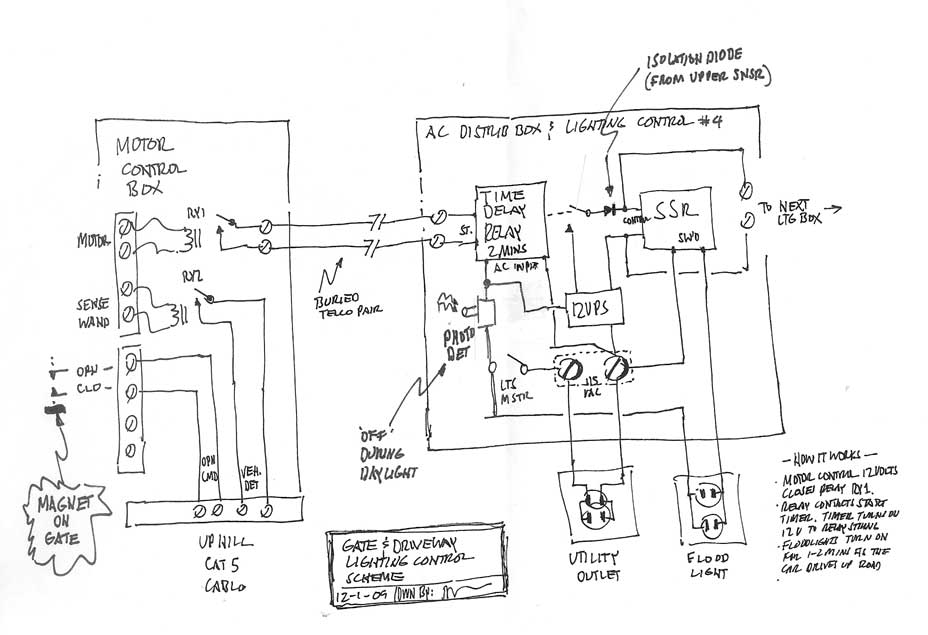 ISOLATION DIODE
(FROM UPPER SNSR)
MOTOR
CONTROL
BOX
AC DISTRIB BOX & LIGHTING CONTROL #4
RY1
MOTOR
RY2
SENSE
WAND
OPN
CLD
OPN
CMD
VEH.
DET
MAGNET
ON
GATE
UPHILL
CAT 5
CABLO
BURIED
TELCO PAIR
ST.
TIME
DELAY
RELAY
2 MINS
AC INPUT
CONTROL
SSR
SW'D
TO NEXT
LTG BOX
12VPS
PHOTO
DET
LTS
MSTR
115
VAC
'OFF'
DURING
DAYLIGHT
UTILITY
OUTLET
FLOOD
LIGHT
GATE & DRIVEWAY
LIGHTING CONTROL
SCHEME
12-1-09 DWN BY:
— HOW IT WORKS —
· MOTOR CONTROL 12VOLTS
CLOSES RELAY RY1.
· RELAY CONTACTS START
TIMER. TIMER TURNS ON
12V TO RELAY STRING
· FLOODLIGHTS TURN ON
FOR 1-2 MIN AS THE
CAR DRIVES UP ROAD